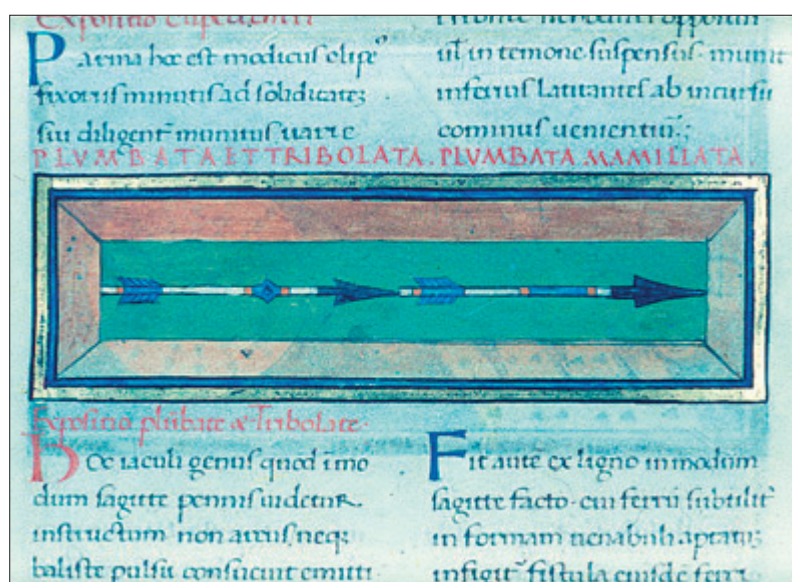 Expositio clipei
Parma hoc est modicus clipe
fixoriis minutis ad soliditatez
sui diligent munitus uarie
in temone suspensus munit
inferius latitantes ab incursu
cominus uenientiu.;
PLVMBATA ET TRIBOLATA. PLVMBATA MAMILLATA.
Expositio plubate & Tribolate.
Hoc iaculi genus quod i mo
dum sagitte pennis uidetur
instructum non arcus neq;
baliste pulsu consueuit emitti
Fit aute ex ligno in modum
sagitte facto. cui ferru subtilit
in formam uenabuli aptatu;
infigit fistula eiusde ferri